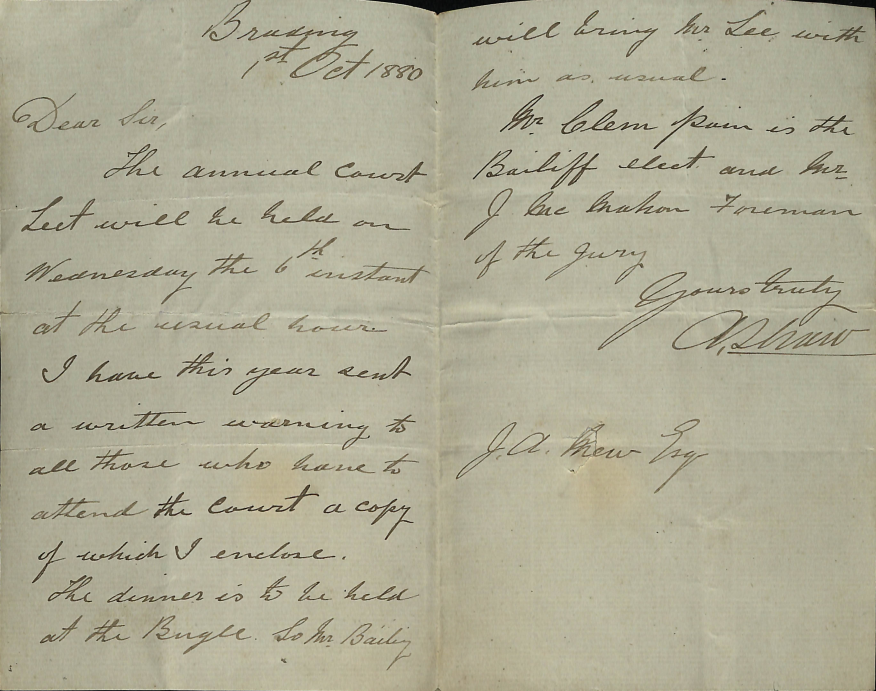 Brading
1st Oct 1880
Dear Sir,
The annual Court
Leet will be held on
Wednesday the 6th instant
at the usual hour
I have this year sent
a written warning to
all those who have to
attend the Court a copy
of which I enclose.
The dinner is to be held
at the Bugle. So Mr. Bailey
will bring Mr Lee with
him as usual.
Mr Clem pain is the
Bailiff elect and Mr
J Mc Mahon Foreman
of the Jury
Yours truly
A. Shaw
J. A. Mew Esq